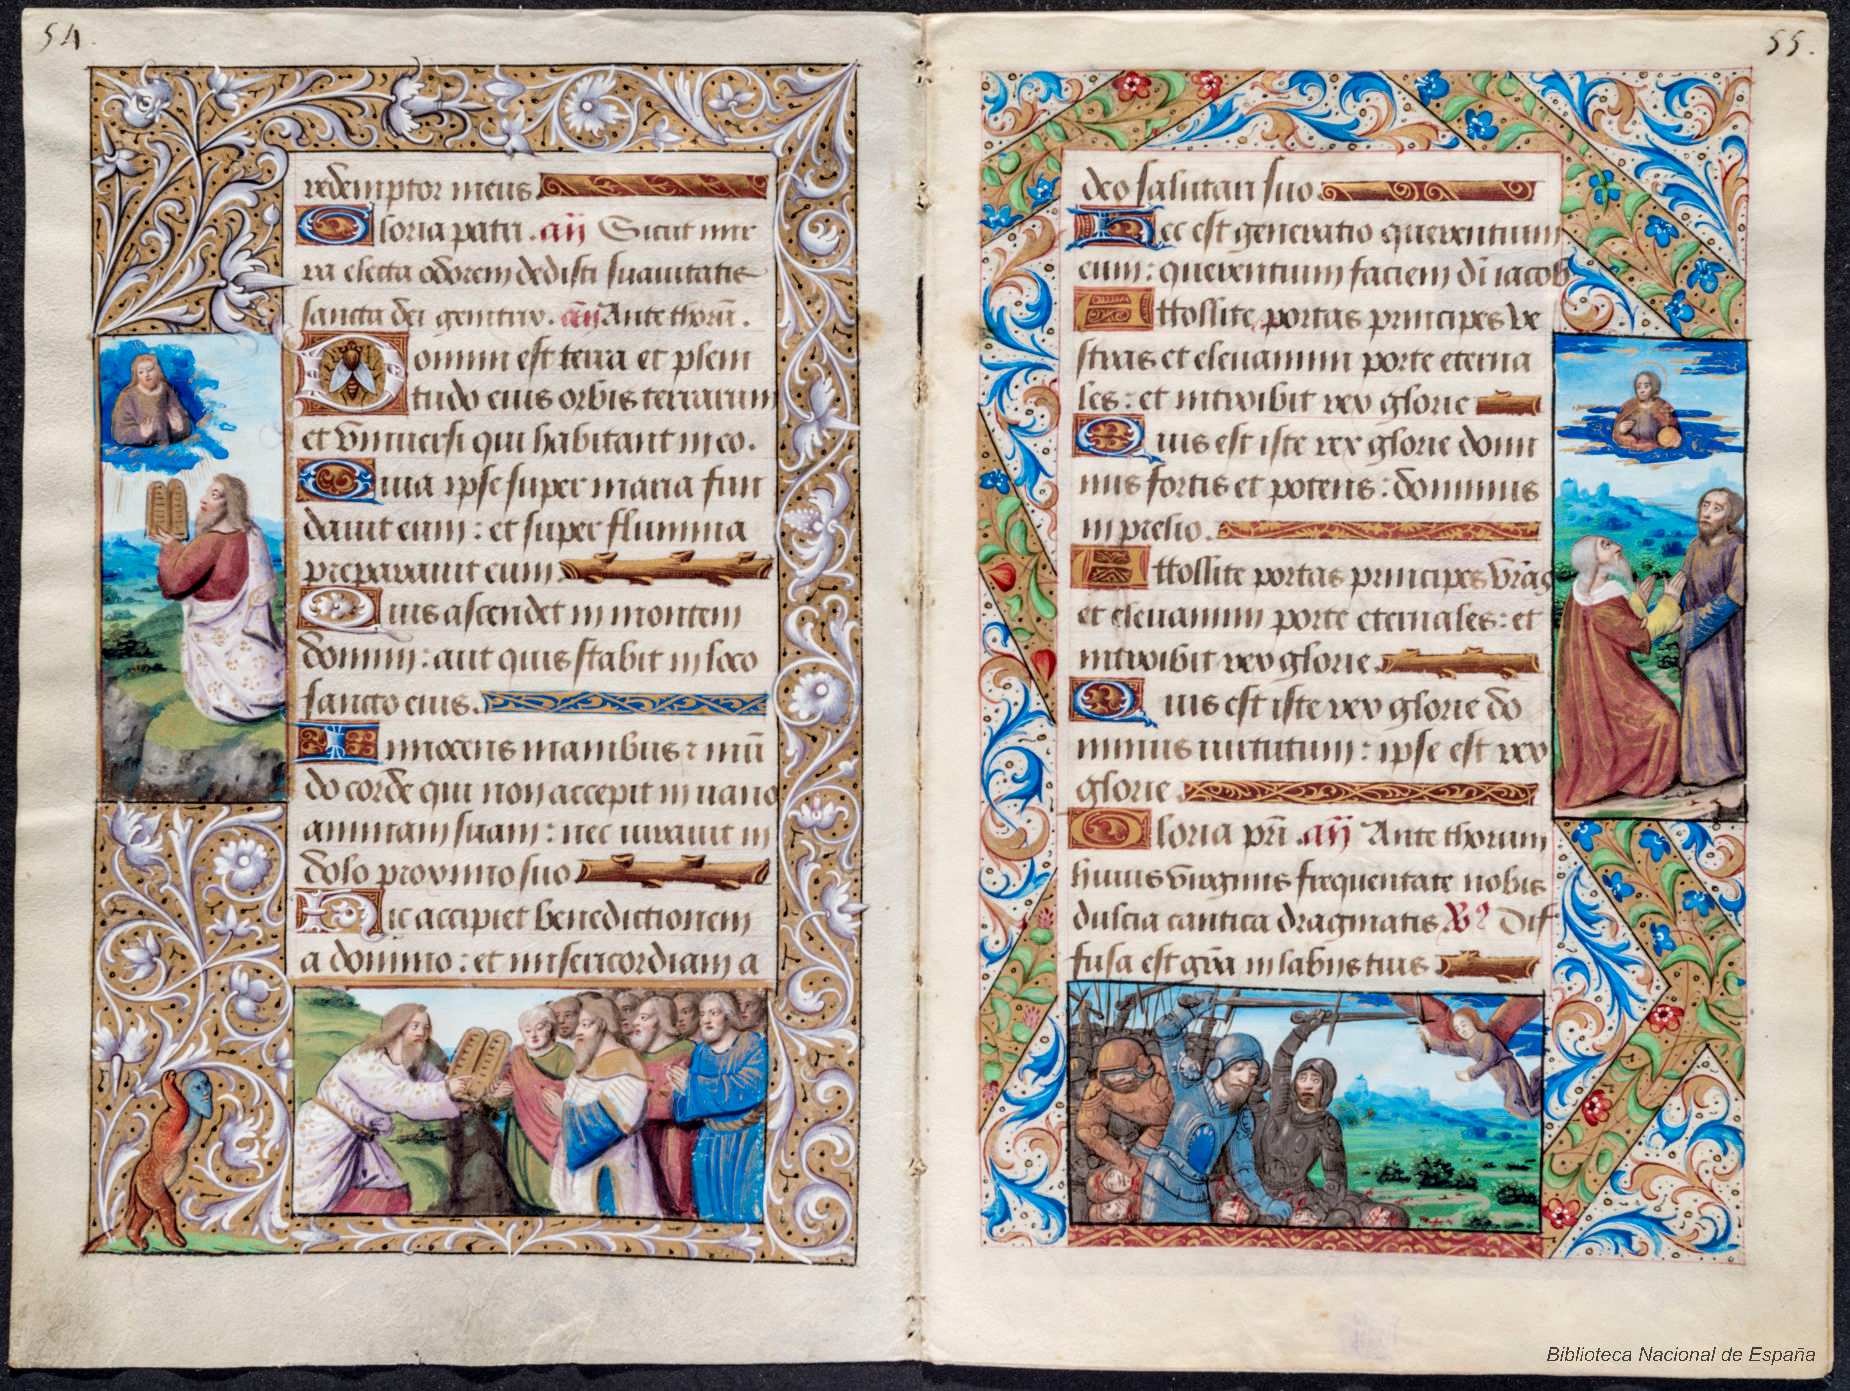 54.
redemptor meus
Gloria patri. añ Sicut mir
ra electa odorem dedisti suauitatis
sancta dei genitrix. añ Ante thorū.
Domini est terra et pleni
tudo eius orbis terrarum
et vniuersi qui habitant in eo.
Quia ipse super maria fun
dauit eum: et super flumina
preparauit eum
Quis ascendet in montem
domini: aut quis stabit in loco
sancto eius.
Innocens manibus ⁊ mū
do corde qui non accepit in uano
animam suam: nec iurauit in
dolo proximo suo
Hic accipiet benedictionem
a domino: et misericordiam a
55.
deo salutari suo
Hec est generatio querentium
eum: querentium faciem dī iacob
Attollite portas principes ve
stras et eleuamini porte eterna
les: et introibit rex glorie
Quis est iste rex glorie domi
nus fortis et potens: dominus
in prelio.
Attollite portas principes vr̄as
et eleuamini porte eternales: et
introibit rex glorie
Quis est iste rex glorie do
minus uirtutum: ipse est rex
glorie
Gloria pr̄i. añ Ante thorum
huius virginis frequentate nobis
dulcia cantica dragmatis Dif
fusa est gr̄a in labiis tuis
Biblioteca Nacional de España